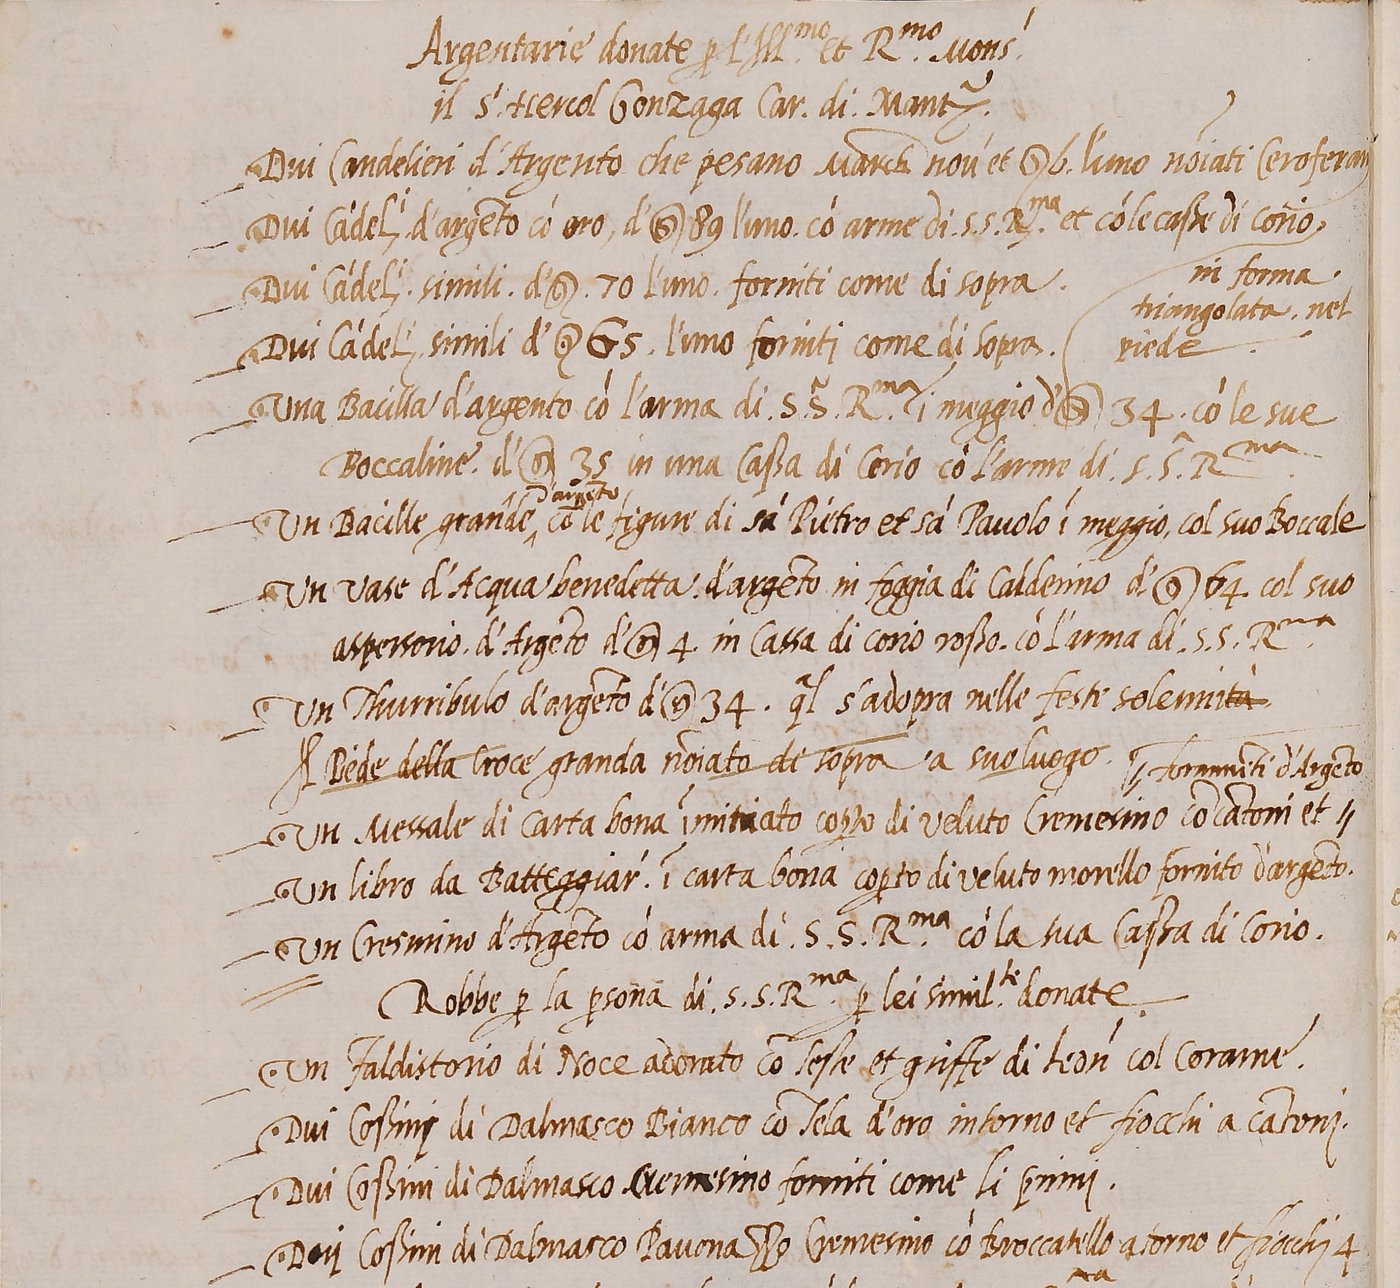 Argentarie donate p l'Ill.mo et R.mo Mons.
il S. Hercol Gonzaga Car. di. Mant.a
Dui Candelieri d'Argento che pesano March nou' et 6. l'uno noiati Ceroferari
Dui Cádel.i d'argéto có oro, d' 89 l'uno. có arme di .S.S.R.ma et có le casse di corio,
Dui Cádel.i simili . d' . 70 l'uno . forniti come di sopra .
in forma
triangolata . nel
piede .
Dui Cádel.i simili d' 65 . l'uno forniti come di sopra .
Una Bacilla d'argento có l'arma di .S.S. R.ma í meggio d' 34 . có le sue
Boccaline . d' 35 in una Cassa di Corio có l'arme di .S.S. R.ma
d'argéto
Un Bacille grande, có le figure di sá Pietro et sá Pauolo í meggio, col suo Boccale
Un vase d'Acqua benedetta . d'argéto in foggia di Calderino d' 64 . col suo
aspersorio . d'Argéto d' 4 . in Cassa di corio rosso . có l'arma di .S.S. R.ma
Un Thurribulo d'argéto d' 34 . ql s'adopra nelle feste solennità
Il Pede della Croce granda noiato de sopra a suo luogo .
// fornimeti d'Argéto
Un Messale di Carta bona í miniato copto di veluto Cremesino có catoni et //
Un libro da Batteggiar . í carta bona copto di veluto morello fornito d'argéto .
Un Cresmino d'Argéto có arma di .S.S. R.ma có la sua Cassa di Corio .
Robbe p la psona di .S.S.R.ma p lei simil.te donate
Un Faldistorio di Noce adorato có teste et griffe di Leon col Corame .
Dui Cossinj di Dalmasco Bianco có Tela d'oro intorno et fiocchi a catonj .
Dui Cossini di Dalmasco Cremesino forniti come li primj .
Duij Cossini di Dalmasco Pauonazzo Cremesino có Broccatello atorno et fiocchi 4